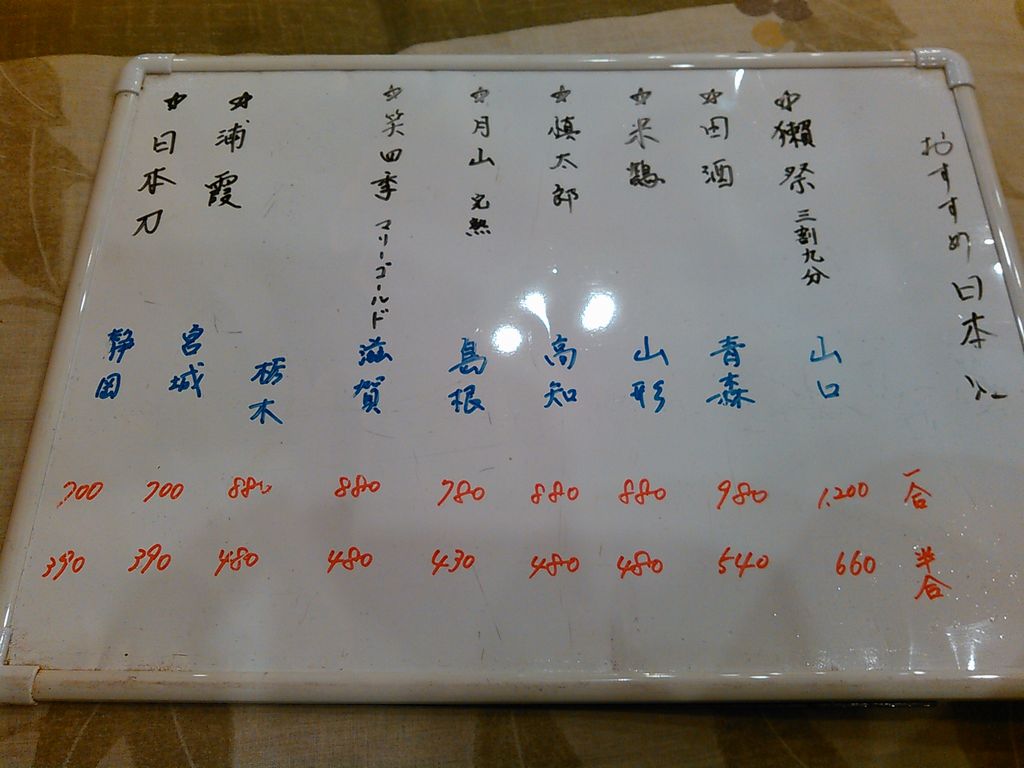 おすすめ日本酒
一合
半合
☆獺祭 三割九分
山口
1,200
660
☆田酒
青森
980
540
☆米鶴
山形
880
480
☆慎太郎
高知
880
480
☆月山 完熟
島根
780
430
☆笑四季 マリーゴールド
滋賀
880
480
栃木
880
480
☆浦霞
宮城
700
390
☆日本刀
静岡
700
390